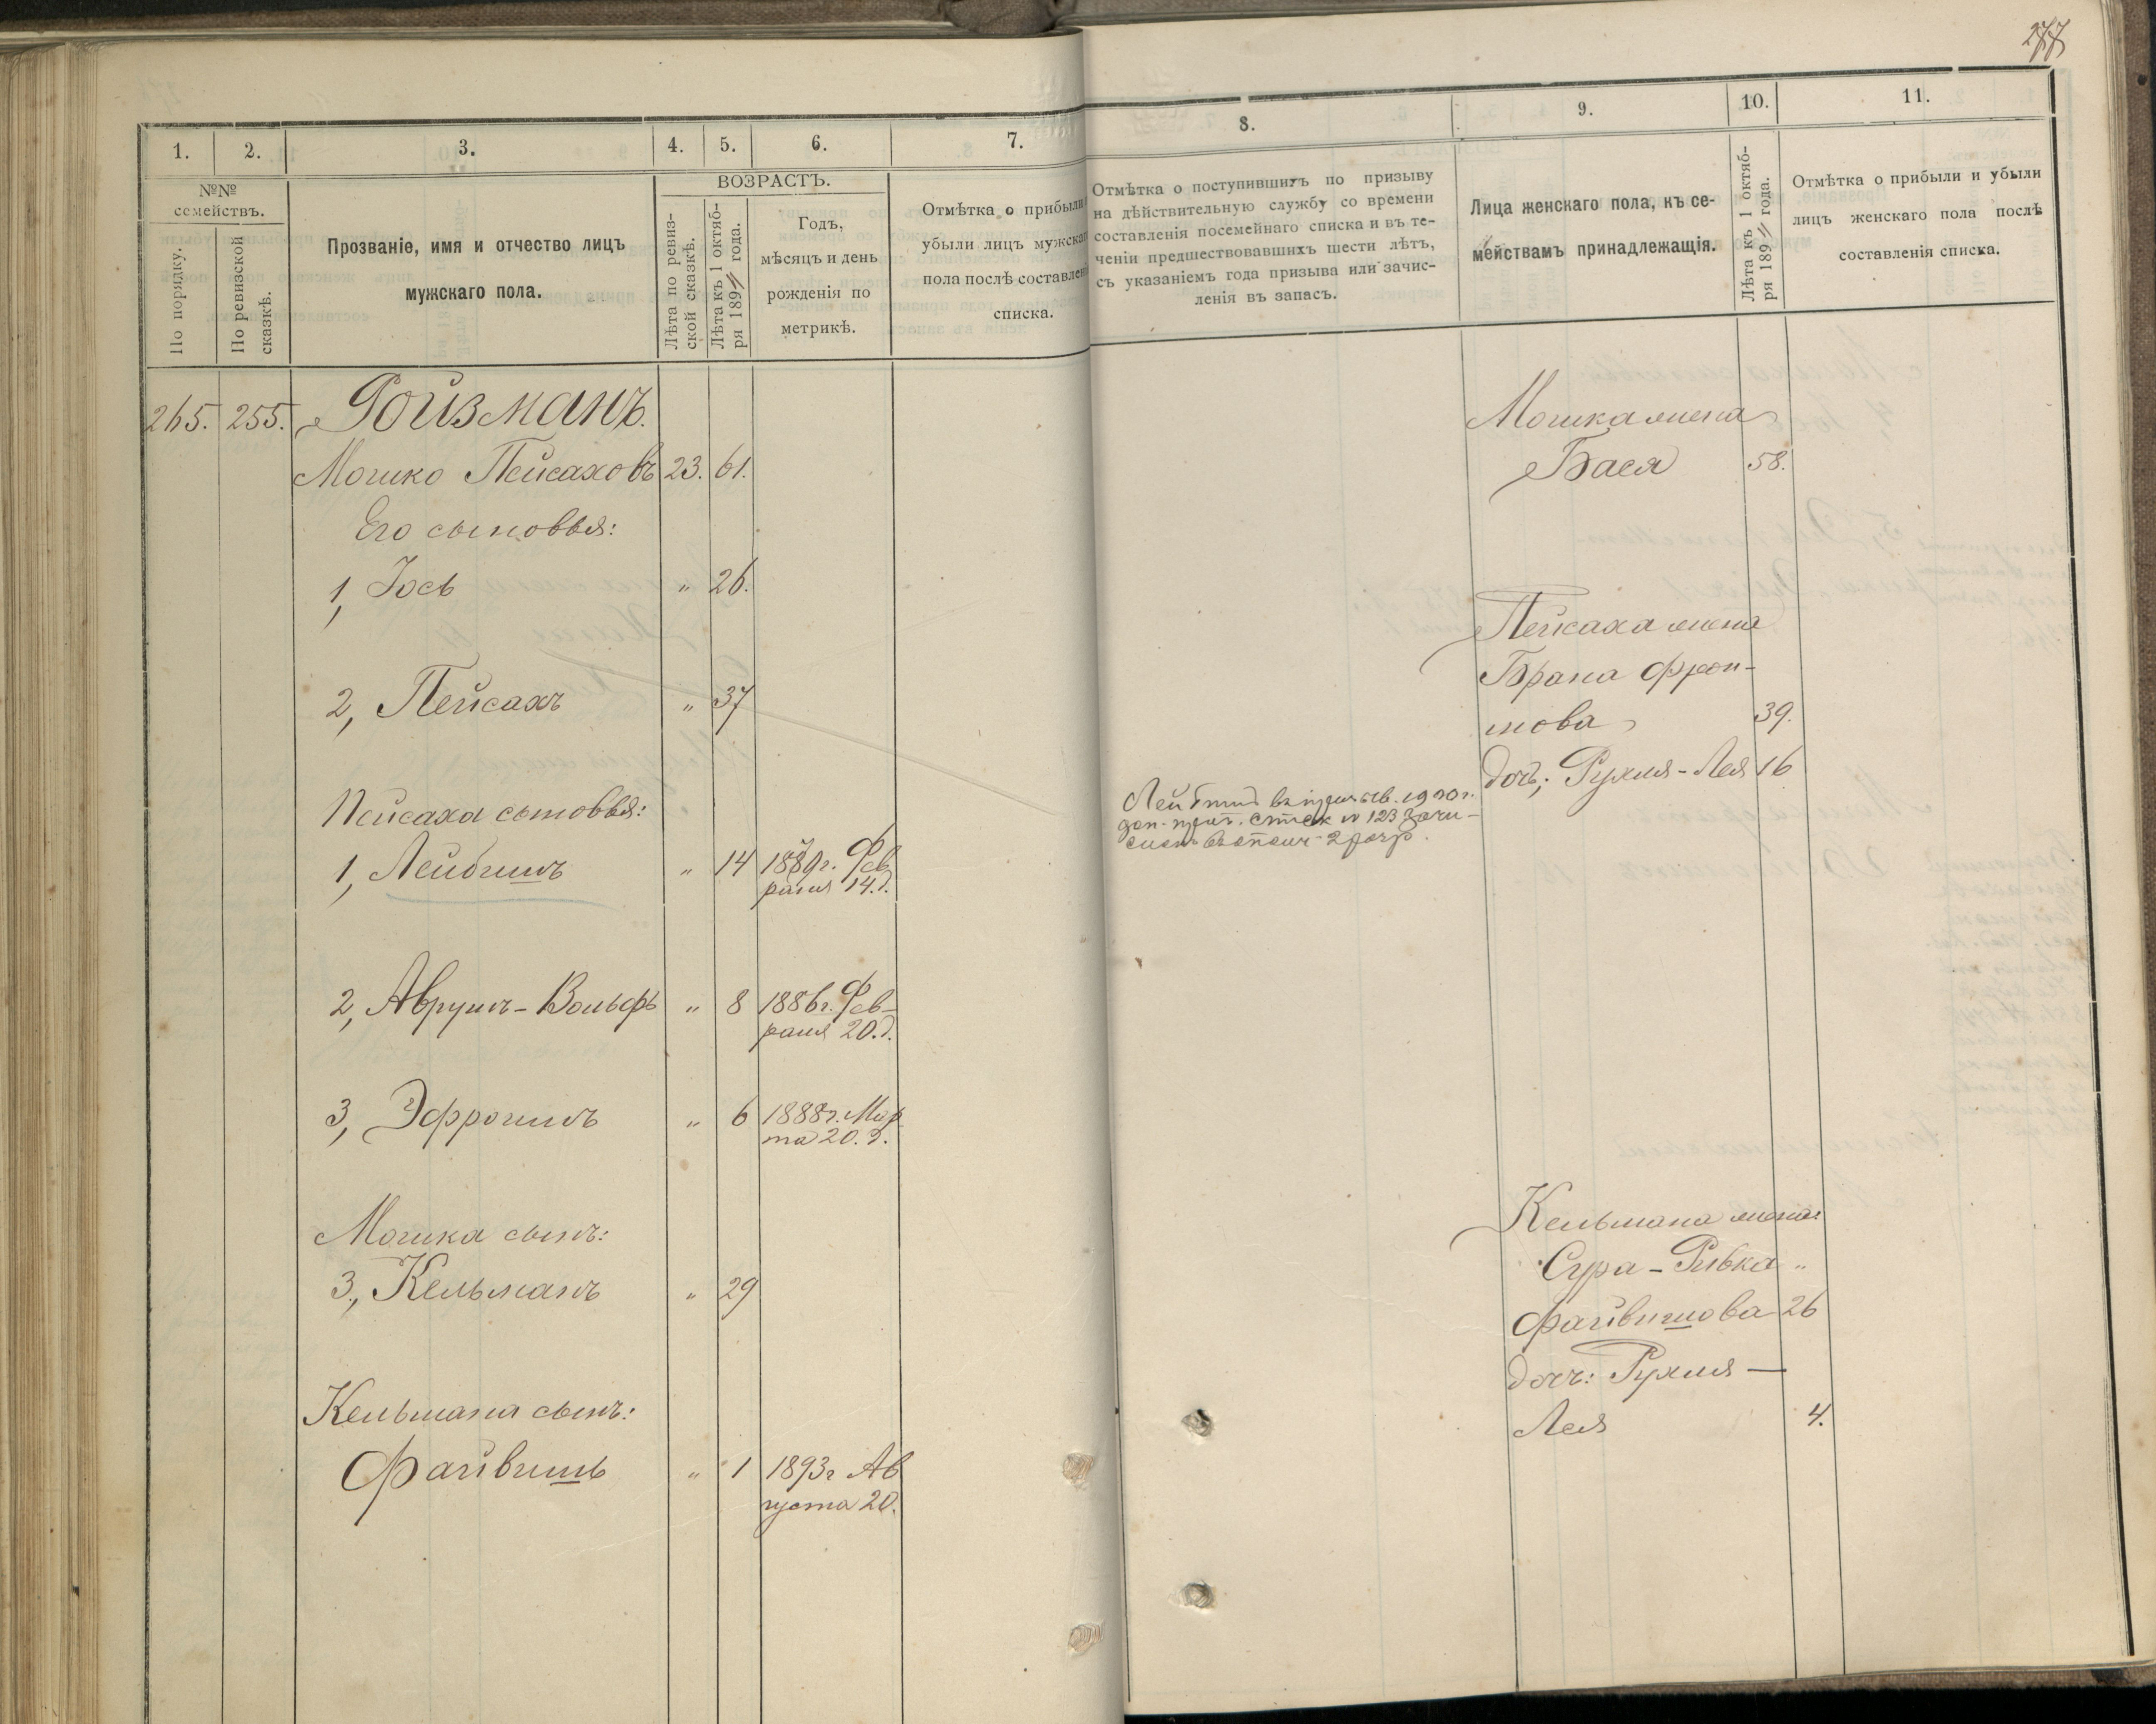 277
1.
2.
3.
4.
5.
6.
7.
№№
семействъ.
По порядку.
По ревизской
сказкѣ.
Прозваніе, имя и отчество лицъ
мужскаго пола.
ВОЗРАСТЪ.
Лѣта по ревиз-
ской сказкѣ.
Лѣта къ 1 октяб-
ря 189 года.
Годъ,
мѣсяцъ и день
рожденія по
метрикѣ.
Отмѣтка о прибыли
убыли лицъ мужска
пола послѣ составлен
списка.
265. 255. Ройзманъ.
Мошко Пейсаховъ 23. 61.
Его сыновья:
1, Іось " 26.
2, Пейсахъ " 37
Пейсаха сыновья:
1, Лейбишъ " 14 1880 г. Фев
раля 14.д.
2, Аврумъ-Вольфъ " 8 1886 г. Фев-
раля 20.д.
3, Эфроимъ " 6 1888 г. Мар
та 20.д.
Мошка сынъ:
3, Кельманъ " 29
Кельмана сынъ:
Файвишъ " 1 1893 г Ав
густа 20.
8.
9.
10.
11.
Отмѣтка о поступившихъ по призыву
на дѣйствительную службу со времени
составленія посемейнаго списка и въ те-
ченіи предшествовавшихъ шести лѣтъ,
съ указаніемъ года призыва или зачис-
ленія въ запасъ.
Лица женскаго пола, къ се-
мействамъ принадлежащія.
Лѣта къ 1 октяб-
ря 189 года.
Отмѣтка о прибыли и убыли
лицъ женскаго пола послѣ
составленія списка.
Мошка жена
Бася 58.
Пейсаха жена
Брана Фрои-
мова 39.
дочь: Рухля-Лея 16
Лейбишъ 1900 г.
№ 123 зачи-
сленъ въ ополч. 2 разр.
Кельмана жена
Сура-Ривка "
Файвишова 26
дочь: Рухля-
Лея 4.